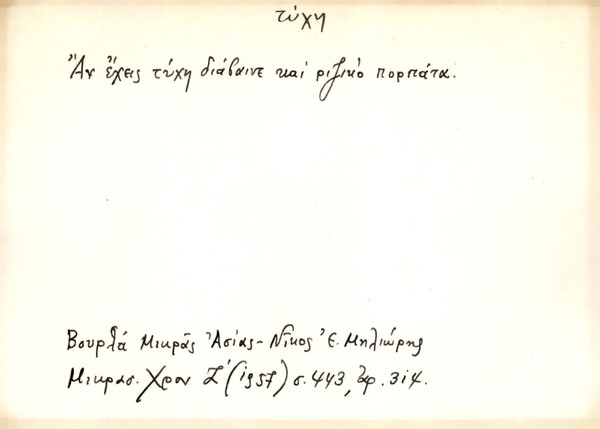 τύχη
Ἄν ἔχεις τύχη διάβαινε καί ριζικό πορπάτα.
Βουρλά Μικρᾶς Ἀσίας - Νῖκος Ἐ. Μηλιώρης
Μικρασ. Χρον Ζ' (1957) σ. 443, ἀρ. 314.